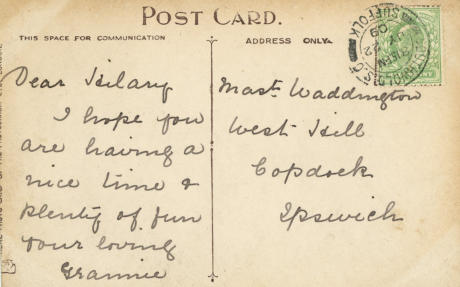 POST CARD.
THIS SPACE FOR COMMUNICATION
ADDRESS ONLY.
Dear Hilary
I hope you
are having a
nice time &
plenty of fun
your loving
Grannie
Mastr Waddington
West Hill
Copdock
Ipswich
SUFFOLK
22
09